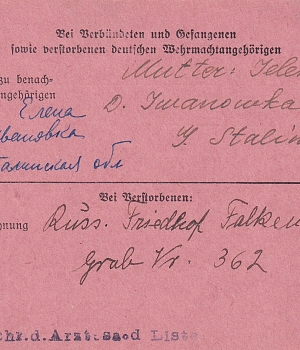 Bei Verbündeten und Gefangenen
sowie verstorbenen deutschen Wehrmachtangehörigen
zu benach-
ngehörigen
Mutter:
D. Iwanowka
Елена
вановка
G. Stalin
талинская обл
Bei Verstorbenen:
hnung Russ. Friedhof Falken
Grab Nr. 362
chr.d.Arztes